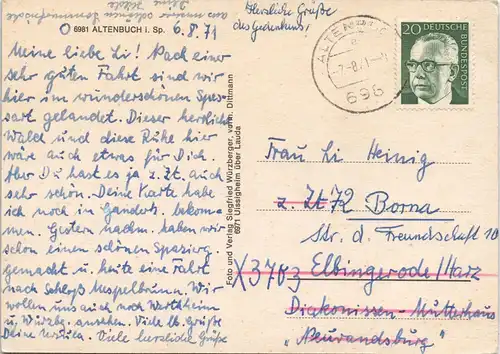 aus meiner
Deine
6981 ALTENBUCH i. Sp. 6.8.71
Meine liebe Li! Nach einer
sehr guten Fahrt sind wir
hier im wunderschönen Spes-
sart gelandet. Dieser herrliche
Wald und diese Ruhe hier
wäre auch etwas für Dich.
Aber Du hast es ja z. Zt. auch
sehr schön. Deine Karte habe
ich noch in bekom-
men. Gestern nachm. haben wir
schon einen schönen Spazierg.
gemacht u. heute eine Fahrt
nach Schloß Mespelbrunn. Wir
wollen uns auch noch Wertheim
u. Würzbg. ansehen. Viele lb. Grüße
Deine Ursula. Viele herzliche Grüße
Foto und Verlag Siegfried Würzberger, vorm. Dittmann
6971 Uissigheim über Lauda
Herzliche Grüße
des Gedenkens,
ALTENBUCH
-7.-8.71
698
20 DEUTSCHE
BUNDESPOST
Frau Li Heinig
z. Zt. 72 Borna
Str. d. Freundschaft 10
X3703 Elbingerode/Harz
Diakonissen-Mutterhaus
"Neuvandsburg"